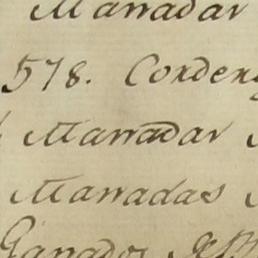 Marradar
578. Corden
Marradar
Marradas
Ganados